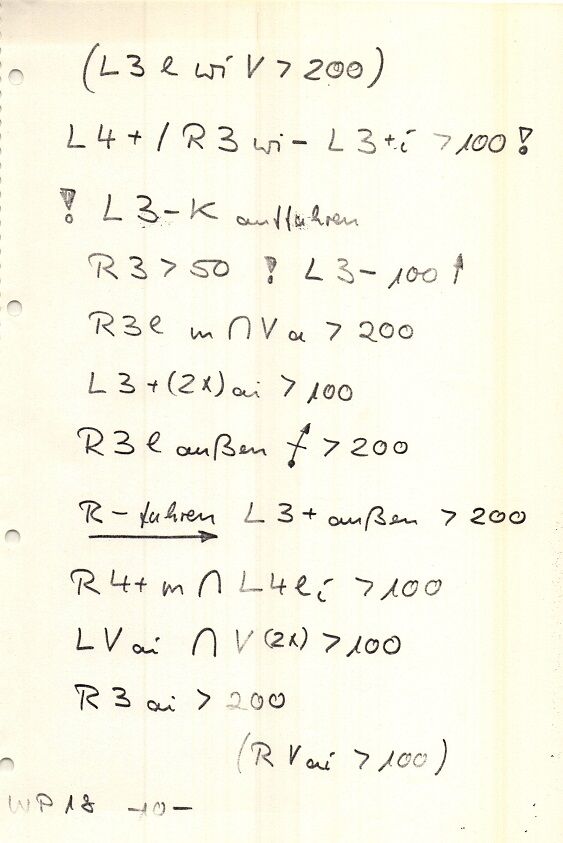 (L3 l wi V > 200)
L4+ / R3 wi - L3+i > 100 !
! L3-K auffahren
R3 > 50 ! L3 - 100 ↑
R3 l m ∩ V a > 200
L3+(2x) ai > 100
R3 l außen > 200
R-fahren L3+ außen > 200
R4+ m ∩ L4 l i > 100
L V ai ∩ V (2x) > 100
R3 ai > 200
(R V ai > 100)
WP 18 -10-